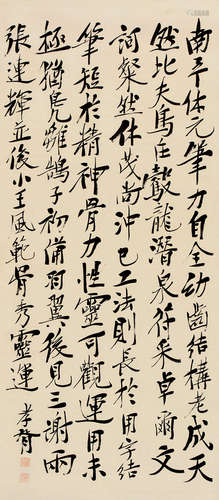 南平休元筆力自全幼齒結構老成天
然比夫鳥在鷇龍潛泉符采卓爾文
詞粲然休茂尚沖已工法則長於用字結
筆短於精神骨力性靈可觀運用未
極猶鳧雛鴿子初備羽翼後見三謝兩
張連輝並俊小王風範骨秀靈運 孝胥